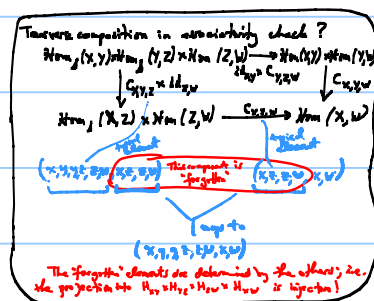 Transverse composition in associativity check?
Hom (X,Y) × Hom (Y,Z) × Hom (Z,W) → Hom(X,Y) × Hom(Y,W)
id_{X,Y} × C_{Y,Z,W}
C_{X,Y,Z} × id_{Z,W} C_{X,Y,W}
Hom (X,Z) × Hom (Z,W) C_{X,Z,W} → Hom (X,W)
typical element typical element
(x,y,y,z,z,w, x,z,z,w) This component is "forgotten" (x,z,z,w,x,w)
maps to
(x,y,y,z,z,w,x,w)
The "forgotten" elements are determined by the others, i.e.
the projection to H_{XY} × H_{YZ} × H_{ZW} × H_{XW} is injective!